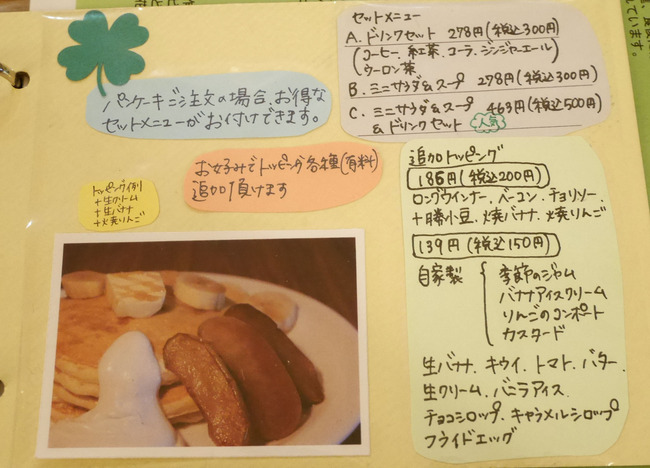 パンケーキご注文の場合、お得な
セットメニューがお付けできます。
セットメニュー
A. ドリンクセット 278円(税込300円)
(コーヒー、紅茶、コーラ、ジンジャーエール)
ウーロン茶
B. ミニサラダ&スープ 278円(税込300円)
C. ミニサラダ&スープ 463円(税込500円)
&ドリンクセット 人気
お好みでトッピング各種(有料)
追加頂けます
トッピング例
+生クリーム
+生バナナ
+焼りんご
追加トッピング
186円(税込200円)
ロングウインナー、ベーコン、チョリソー、
十勝小豆、焼バナナ、焼りんご
139円(税込150円)
自家製 季節のジャム
バナナアイスクリーム
りんごのコンポート
カスタード
生バナナ、キウイ、トマト、バター、
生クリーム、バニラアイス、
チョコシロップ、キャラメルシロップ
フライドエッグ